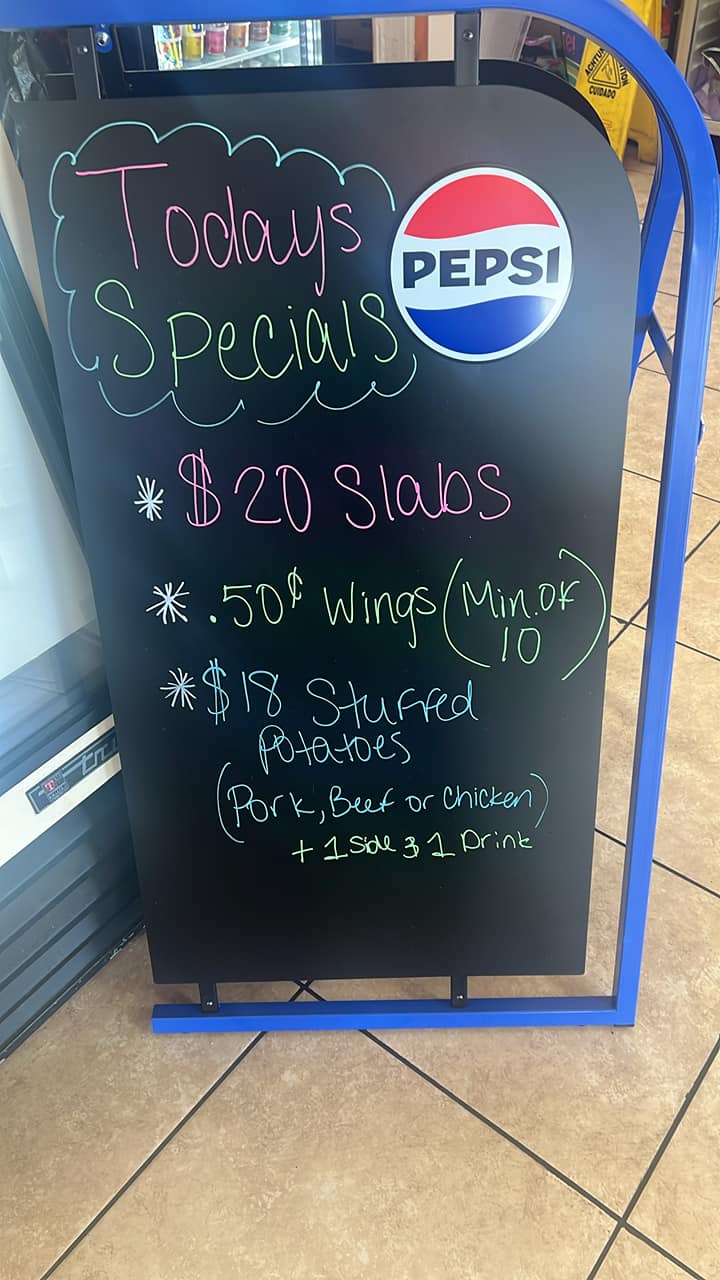 Todays
Specials
PEPSI
* $20 Slabs
* .50¢ Wings (Min. OF
10)
* $18 Stuffed
Potatoes
(Pork, Beef or Chicken)
+ 1 Side & 1 Drink
CUIDADO